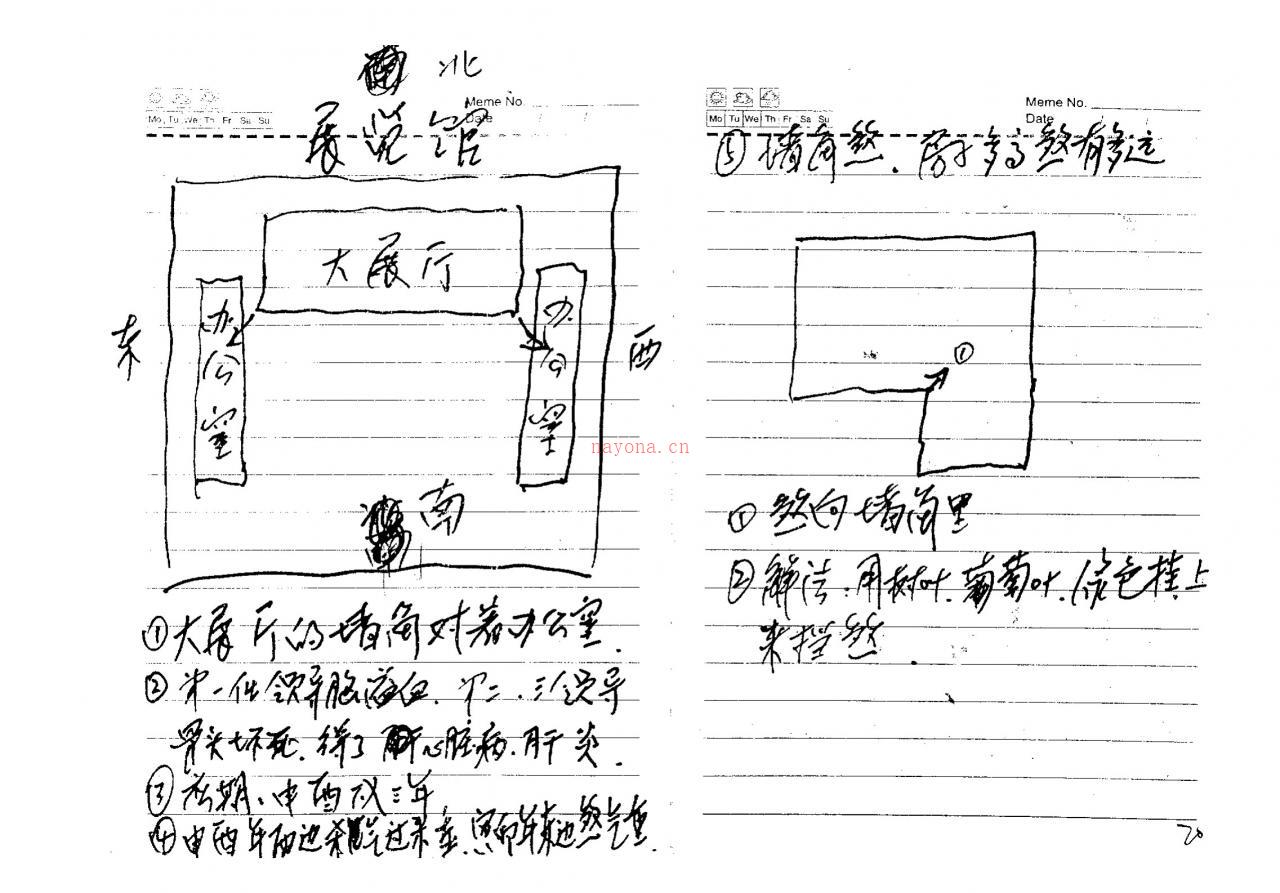 北
展览馆
Meme No.
Date
Mo Tu We Th Fr Sa Su
大展厅
办公室
办公室
东
西
南
①大展厅的墙角对着办公室.
②第一任领导脑溢血.第二.三任领导
骨头坏死.得了心脏病.肝炎.
③应期、申酉戌三年
④申酉年西边煞气过来重.寅卯年东边煞气重.
Meme No.
Date
Mo Tu We Th Fr Sa Su
⑤墙角煞.房子多高煞有多远
①
①煞向墙角里
②解法.用树叶.葡萄叶.绿色挂上
来挡煞.
20
nayona.cn